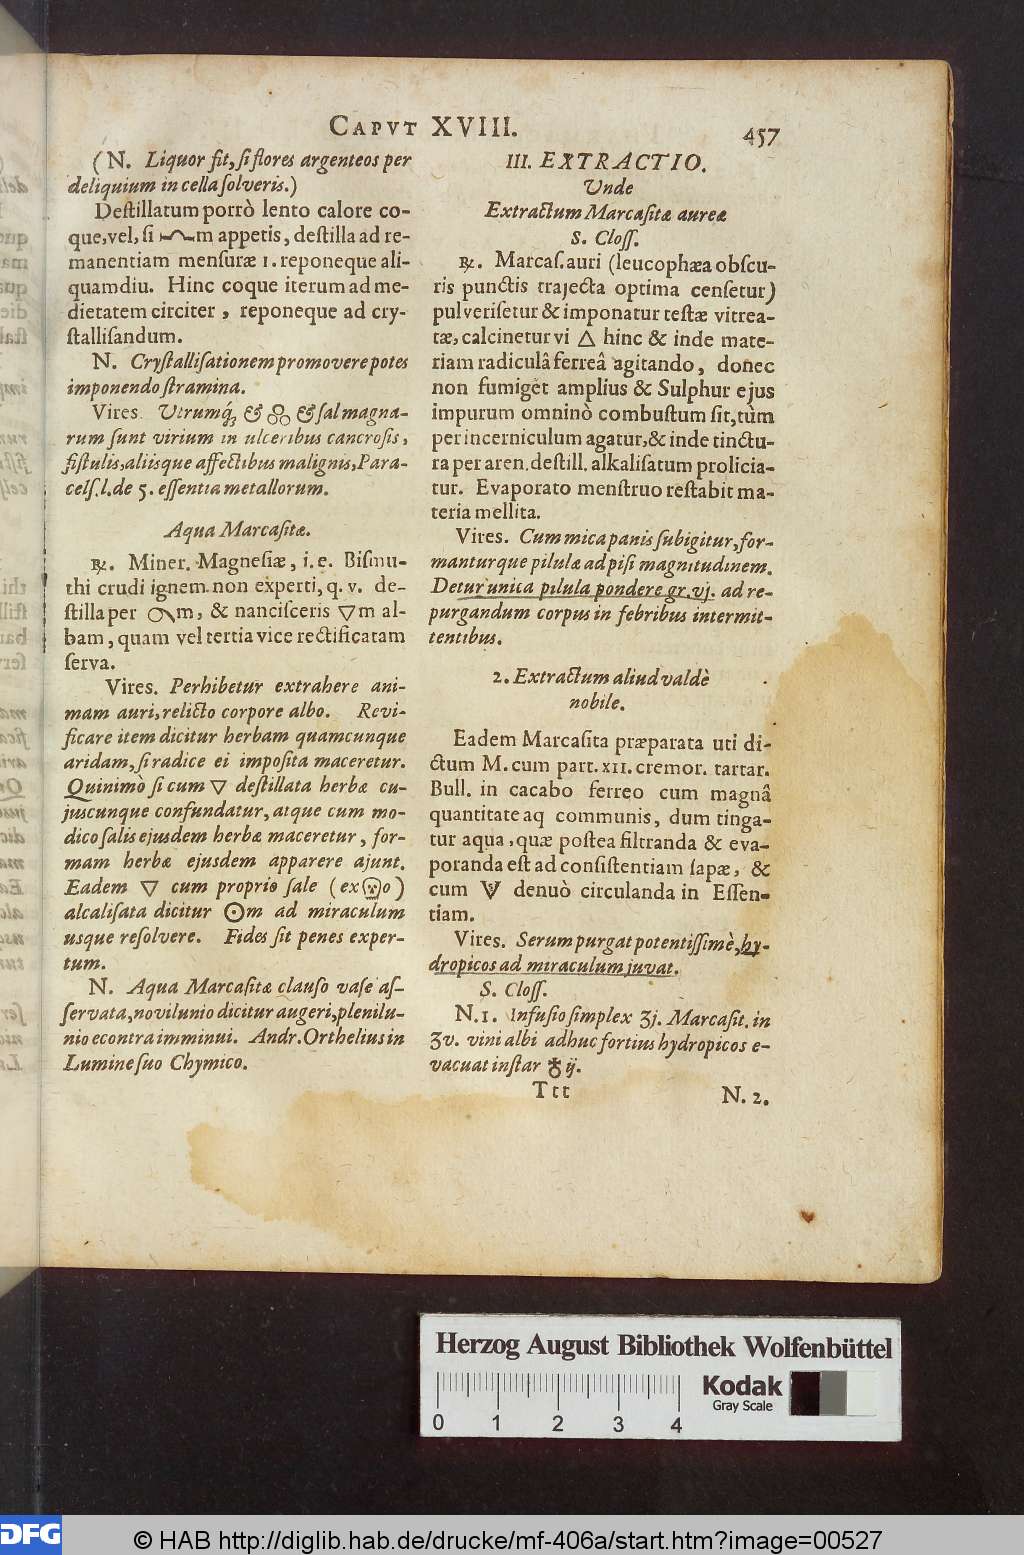 CAPVT XVIII.
457
(N. Liquor fit, ſi flores argenteos per
deliquium in cella ſolveris.)
Deſtillatum porrò lento calore co-
que, vel, ſi m appetis, deſtilla ad re-
manentiam menſuræ 1. reponeque ali-
quamdiu. Hinc coque iterum ad me-
dietatem circiter, reponeque ad cry-
ſtalliſandum.
N. Cryſtalliſationem promovere potes
imponendo ſtramina.
Vires. Utrumq́; & & ſal magna-
rum ſunt virium in ulceribus cancroſis,
fiſtulis, aliisque affectibus malignis, Para-
celſ. l. de 5. eſſentia metallorum.
Aqua Marcaſitæ.
℞. Miner. Magneſiæ, i. e. Biſmu-
thi crudi ignem non experti, q. v. de-
ſtilla per m, & nanciſceris 🜄m al-
bam, quam vel tertia vice rectificatam
ſerva.
Vires. Perhibetur extrahere ani-
mam auri, relicto corpore albo. Revi-
ficare item dicitur herbam quamcunque
aridam, ſi radice ei impoſita maceretur.
Quinimò ſi cum 🜄 deſtillata herbæ cu-
juscunque confundatur, atque cum mo-
dico ſalis ejusdem herbæ maceretur, for-
mam herbæ ejusdem apparere ajunt.
Eadem 🜄 cum proprio ſale (ex o)
alcaliſata dicitur ☉m ad miraculum
usque reſolvere. Fides ſit penes exper-
tum.
N. Aqua Marcaſitæ clauſo vaſe aſ-
ſervata, novilunio dicitur augeri, plenilu-
nio econtra imminui. Andr. Orthelius in
Lumine ſuo Chymico.
III. EXTRACTIO.
Unde
Extractum Marcaſitæ aureæ
S. Cloſſ.
℞. Marcaſ. auri (leucophæa obſcu-
ris punctis trajecta optima cenſetur)
pulveriſetur & imponatur teſtæ vitrea-
tæ, calcinetur vi 🜂 hinc & inde mate-
riam radiculâ ferreâ agitando, donec
non fumiget amplius & Sulphur ejus
impurum omninò combuſtum ſit, tùm
per incerniculum agatur, & inde tinctu-
ra per aren. deſtill. alkaliſatum prolicia-
tur. Evaporato menſtruo reſtabit ma-
teria mellita.
Vires. Cum mica panis ſubigitur, for-
manturque pilulæ ad piſi magnitudinem.
Detur unica pilula pondere gr. vj. ad re-
purgandum corpus in febribus intermit-
tentibus.
2. Extractum aliud valdè
nobile.
Eadem Marcaſita præparata uti di-
ctum M. cum part. XII. cremor. tartar.
Bull. in cacabo ferreo cum magnâ
quantitate aq communis, dum tinga-
tur aqua, quæ poſtea filtranda & eva-
poranda eſt ad conſiſtentiam ſapæ, &
cum denuò circulanda in Eſſen-
tiam.
Vires. Serum purgat potentiſſimè, hy-
dropicos ad miraculum juvat.
S. Cloſſ.
N. 1. Infuſio ſimplex ʒj. Marcaſit. in
ʒv. vini albi adhuc fortius hydropicos e-
vacuat inſtar ♁ ij.
Ttt
N. 2.
Herzog August Bibliothek Wolfenbüttel
0 1 2 3 4
Kodak
Gray Scale
DFG
© HAB http://diglib.hab.de/drucke/mf-406a/start.htm?image=00527